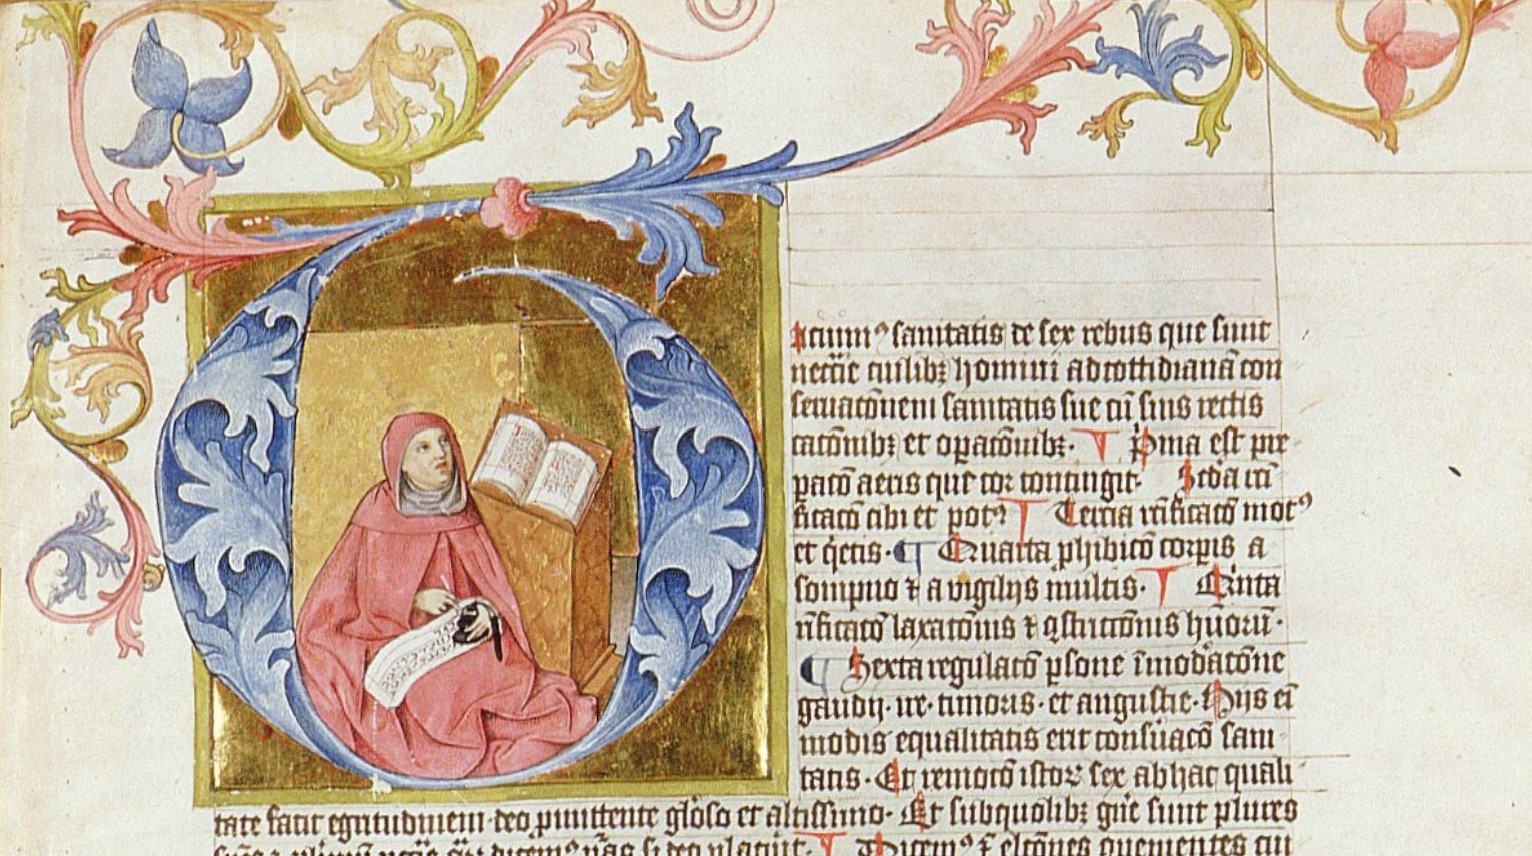 icimꝰ sanitatis de sex rebus que sunt
nc̄c̄ie cuilibꝫ homini ad cottidianā con
seruac̄onem sanitatis sue cū suis rectis
cac̄onibꝫ et oꝑac̄onibꝫ. ¶ Pͥma est pre
parac̄o aeris que cor contingit. Scd̄a rc̄i
ficac̄o cibi et potꝰ ¶ Tercia rc̄ificac̄o motꝰ
et qͥetis. ¶ Quarta ꝓhibic̄o corꝑis a
sompno ⁊ a vigilijs multis. ¶ Quinta
rc̄ificac̄o laxac̄onis ⁊ ꝯstricc̄onis hūorū.
¶ Sexta regulac̄o ꝑsone ī modac̄one
gaudij. ire. timoris. et angustie. Hijs ei
modis equalitatis erit conẜuac̄o sani
tatis. Et remoc̄o istoꝝ sex ab hac quali
tate facit egritudinem deo ꝑmittente gl̄oso et altissimo. Et sub quolibꝫ gn̄e sunt plures